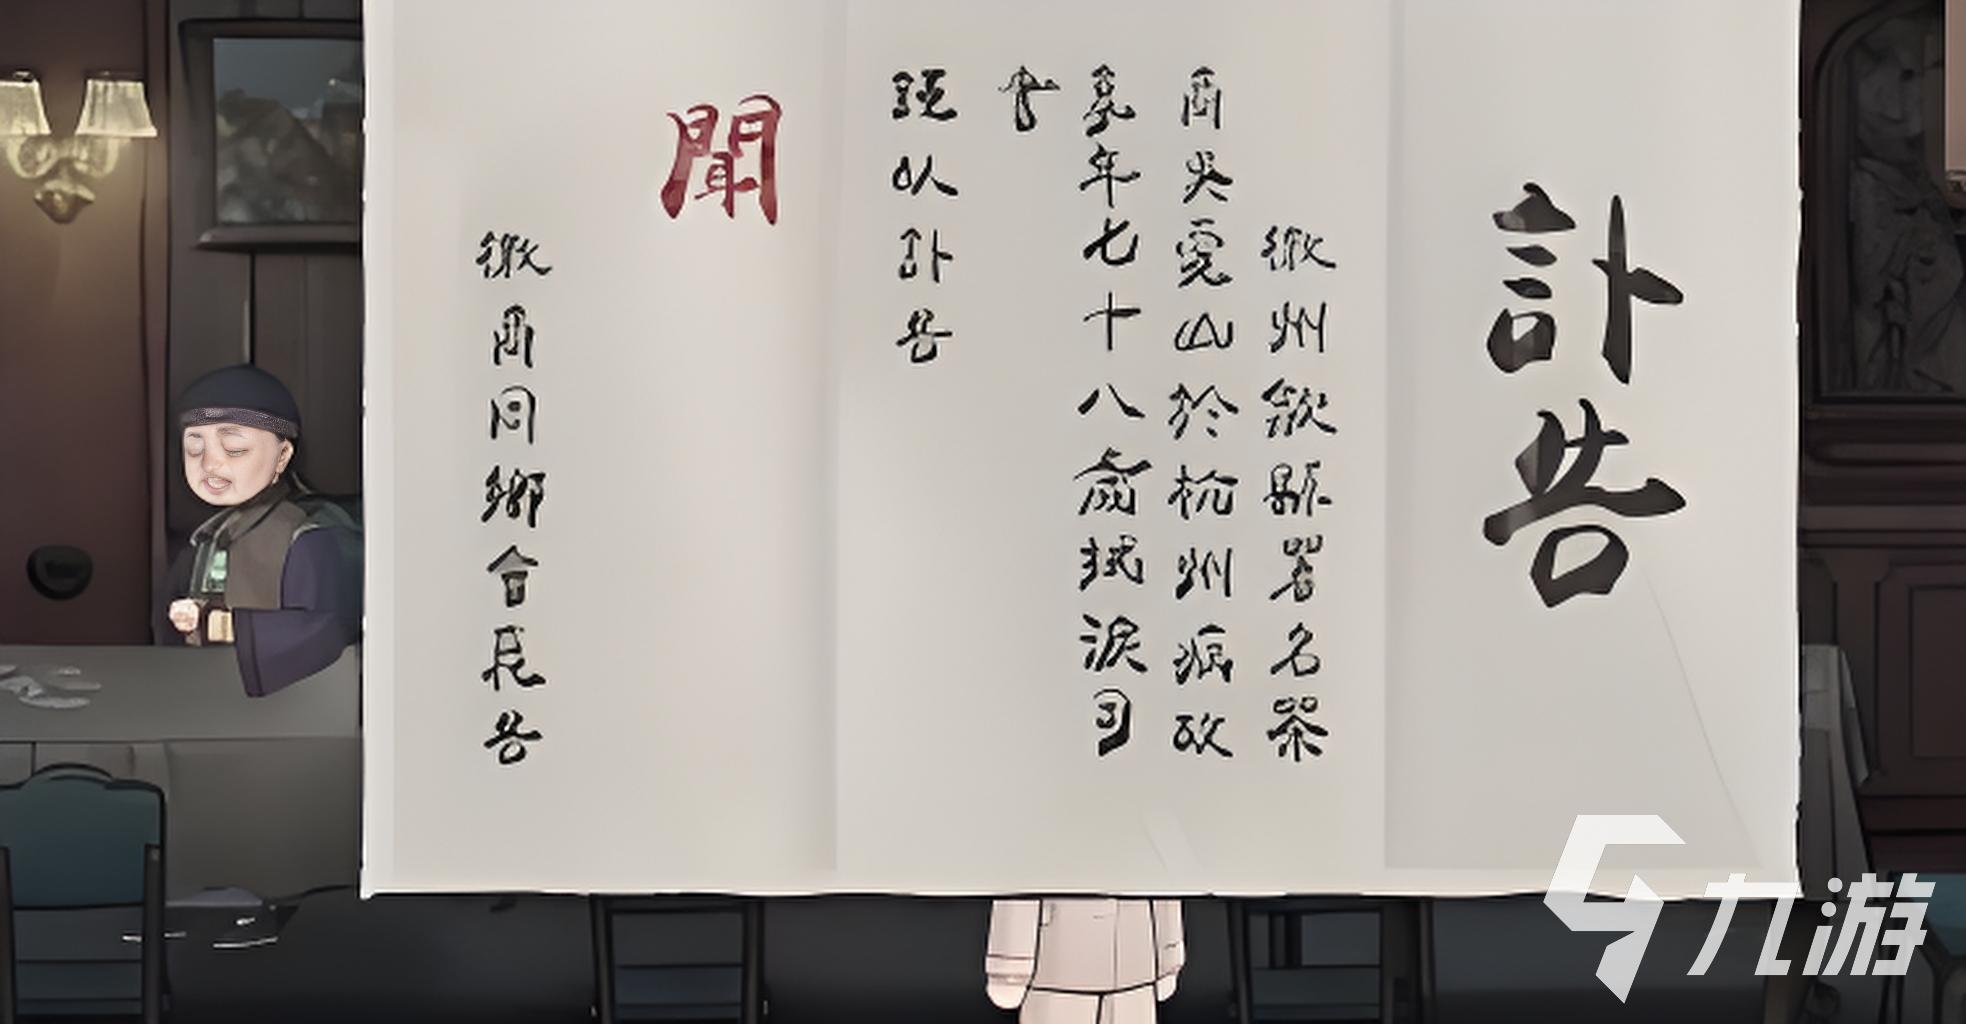 訃告
徽州歙縣著名茶
商吳山於杭州病故
享年七十八歲拭淚司
書
以訃告
聞
徽商同鄉會告